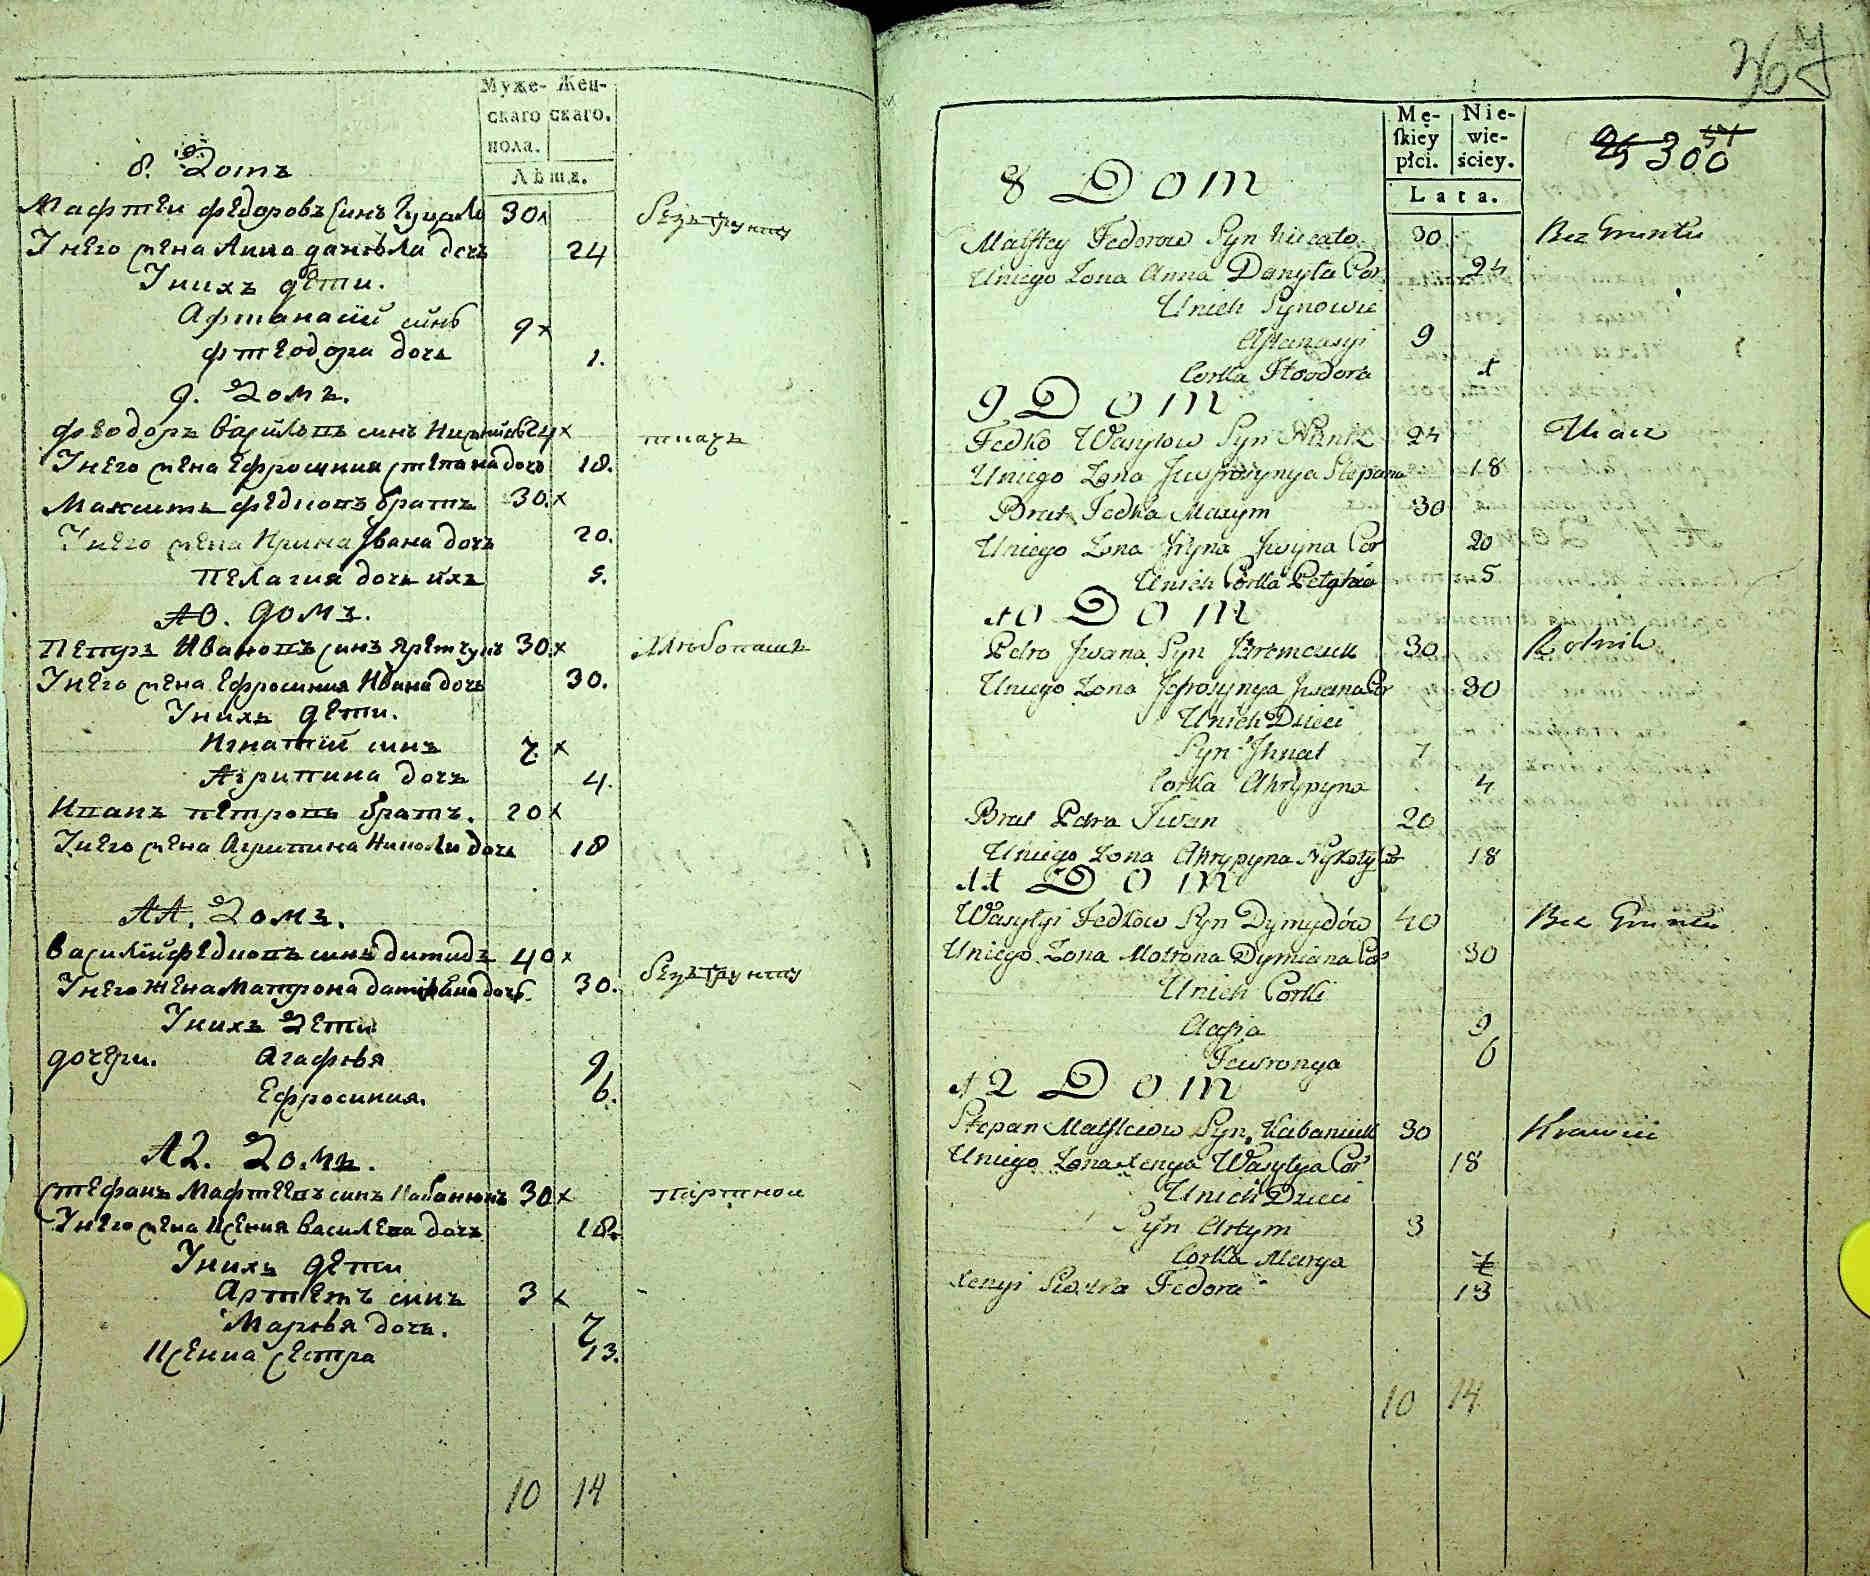 Муже- Жен-
скаго скаго.
пола.
Лѣта.
8. Домъ
Мафтеи федоровъ синъ 30 x безъгрунту
Унего жена Анна данѣла дочь 24
Унихъ дети.
Афтанасій синъ 9 x
фтеодора дочь 1.
9. Домъ.
феодоръ василовъ синъ 24 x ткачъ
Унего жена Ефросиния степана дочь 18.
Максимъ федковъ братъ 30. x
Унего жена Ирина Ивана дочь 20.
Пелагия дочь ихъ 5.
10. домъ.
Петръ Ивановъ синъ Яремчукъ 30. x хлѣбопашъ
Унего жена Ефросиния Ивана дочь 30.
Унихъ дети.
Игнатій синъ 7. x
Агрипина дочъ 4.
Иванъ петровъ братъ. 20 x
Унего жена Агрипина Николи дочь 18
11. Домъ.
Василій федковъ синъ димидъ 40 x
Унего жена Матрона дочь. 30. безъгрунту
Унихъ дети
дочери. Агафѣя 9
Ефросиния. 6.
12. Домъ.
Стефанъ Мафтеевъ синъ Кабанюкъ 30 x партнои
Унего жена Ксения василева дочь 18.
Унихъ дети
Артемъ синъ 3 x
Марѣя дочь. 7
Ксениа сестра 13.
10 14
367
Mę- Nie-
skiey wie-
płci. ściey.
Lata.
300
8 Dom
Maftey Fedorow Syn 30 Bez Gruntu
Uniego Zona Anna Danyła Cor 24
Unich Synowie
Aftanasyi 9
Corka Fteodora 1
9 Dom
Fedko Wasylow Syn 24 Tkacz
Uniego Zona Stepana 18
Brat Fedka Maxym 30
Uniego Zona Jryna Jwana Cor 20
Unich Corka Pelahia 5
10 Dom
Petro Jwana Syn Jaremczuk 30 Rolnik
Uniego Zona Jefrosynya Jwana Cor 30
Unich Dzieci
Syn Jhnat 7
Corka Ahrypyna 4
Brat Petra Jwan 20
Uniego Zona Ahrypyna Nykoły Cor 18
11 Dom
Wasylyi Fedkow Syn Dymydów 40 Bez Gruntu
Uniego Zona Motrona Dymiana Cor 30
Unich Corki
Aafia 9
Jewronya 6
12 Dom
Stepan Maftiow Syn Kabaniuk 30 Krawiec
Uniego Zona Xenya Wasylya Cor 18
Unich Dzieci
Syn Artym 3
Corka Marya 7
Xenyi Siostra Fedora 13
10 14